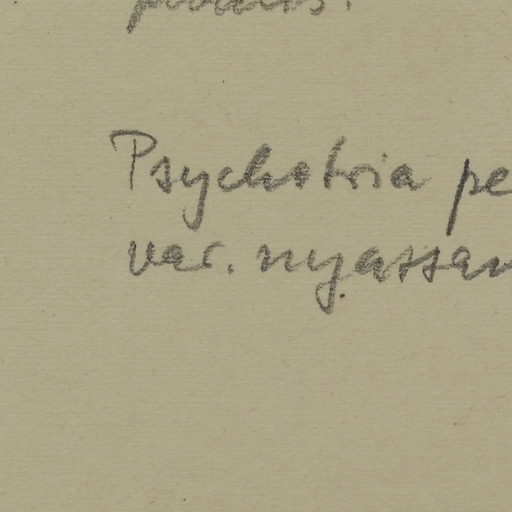 Psychotria pe
var. nyassan